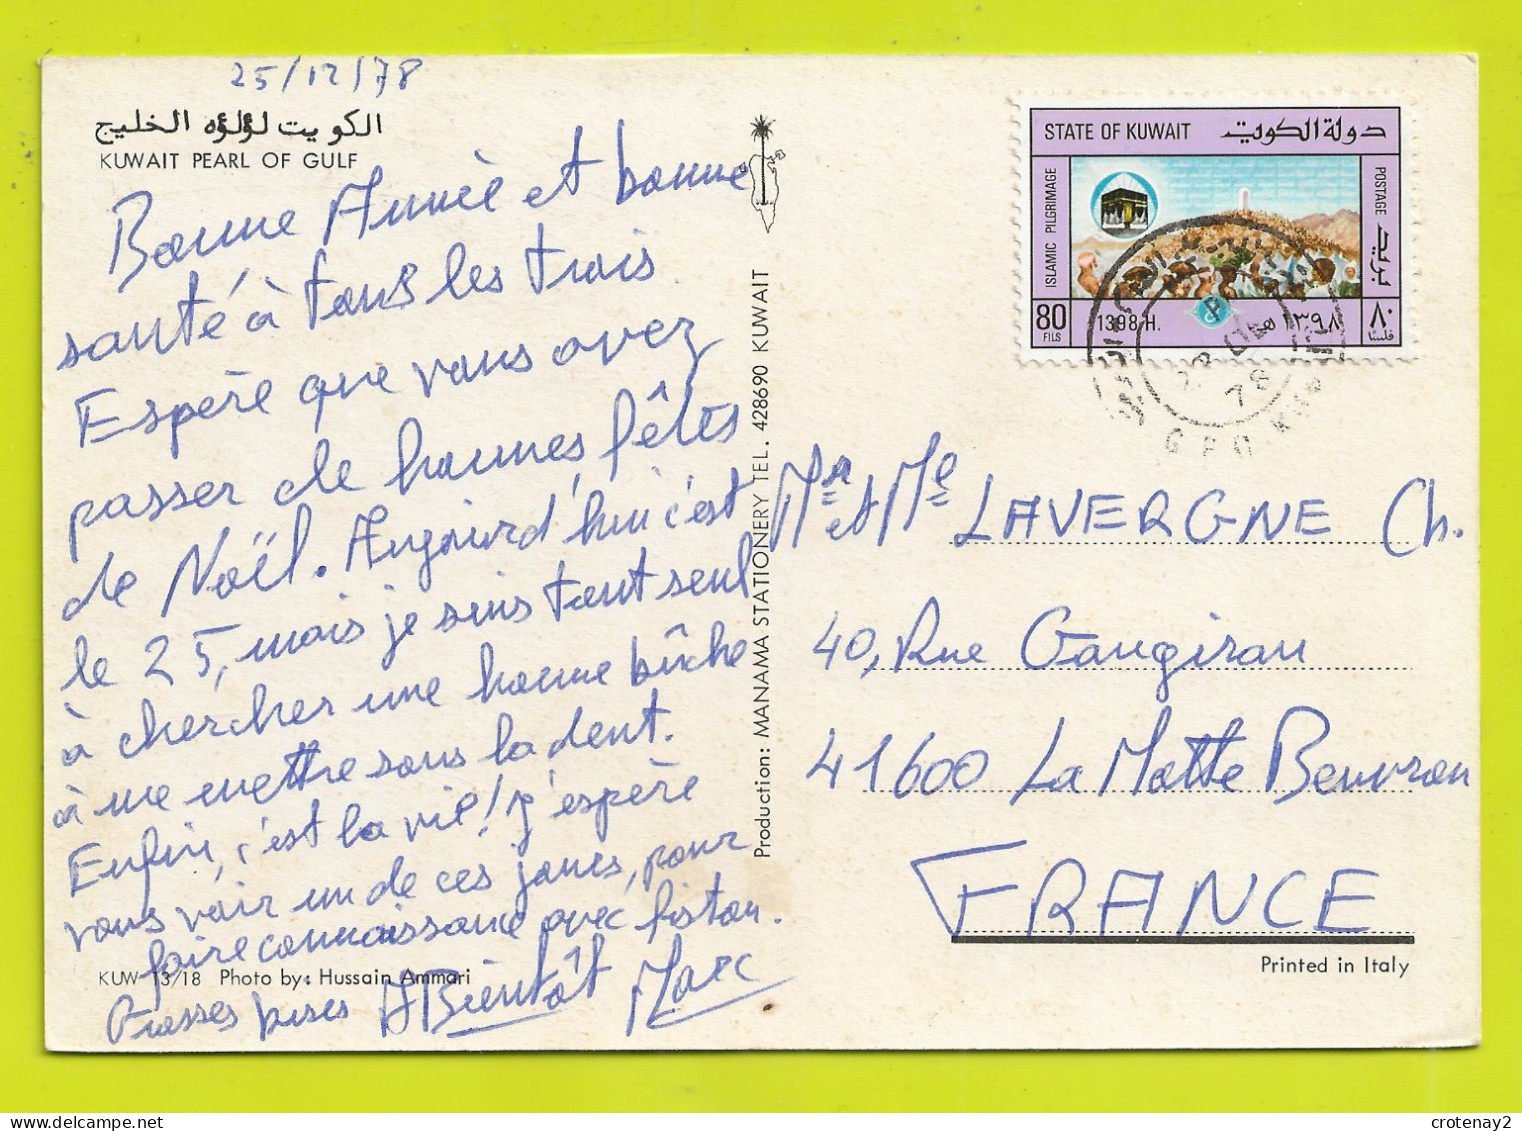 25/12/78
الكويت لؤلؤه الخليج
KUWAIT PEARL OF GULF
Bonne Année et bonne
santé à tous les trois
Espère que vous avez
passer de bonnes fêtes
de Noël. Aujourd'hui c'est
le 25, mais je suis tout seul
à chercher une bonne bûche
à me mettre sous la dent.
Enfin, c'est la vie! J'espère
vous voir un de ces jours, pour
faire connaissance avec fiston.
Grosses bises A Bientôt Marc
KUW 13/18 Photo by: Hussain Ammari
Production: MANAMA STATIONERY TEL. 428690 KUWAIT
STATE OF KUWAIT دولة الكويت
ISLAMIC PILGRIMAGE
POSTAGE بريد
80 FILS 1398 H. ١٣٩٨ هـ ٨٠ فلسا
78
GPO
Mr et Me LAVERGNE Ch.
40, Rue Gaugiran
41600 La Motte Beuvron
FRANCE
Printed in Italy
crotenay2